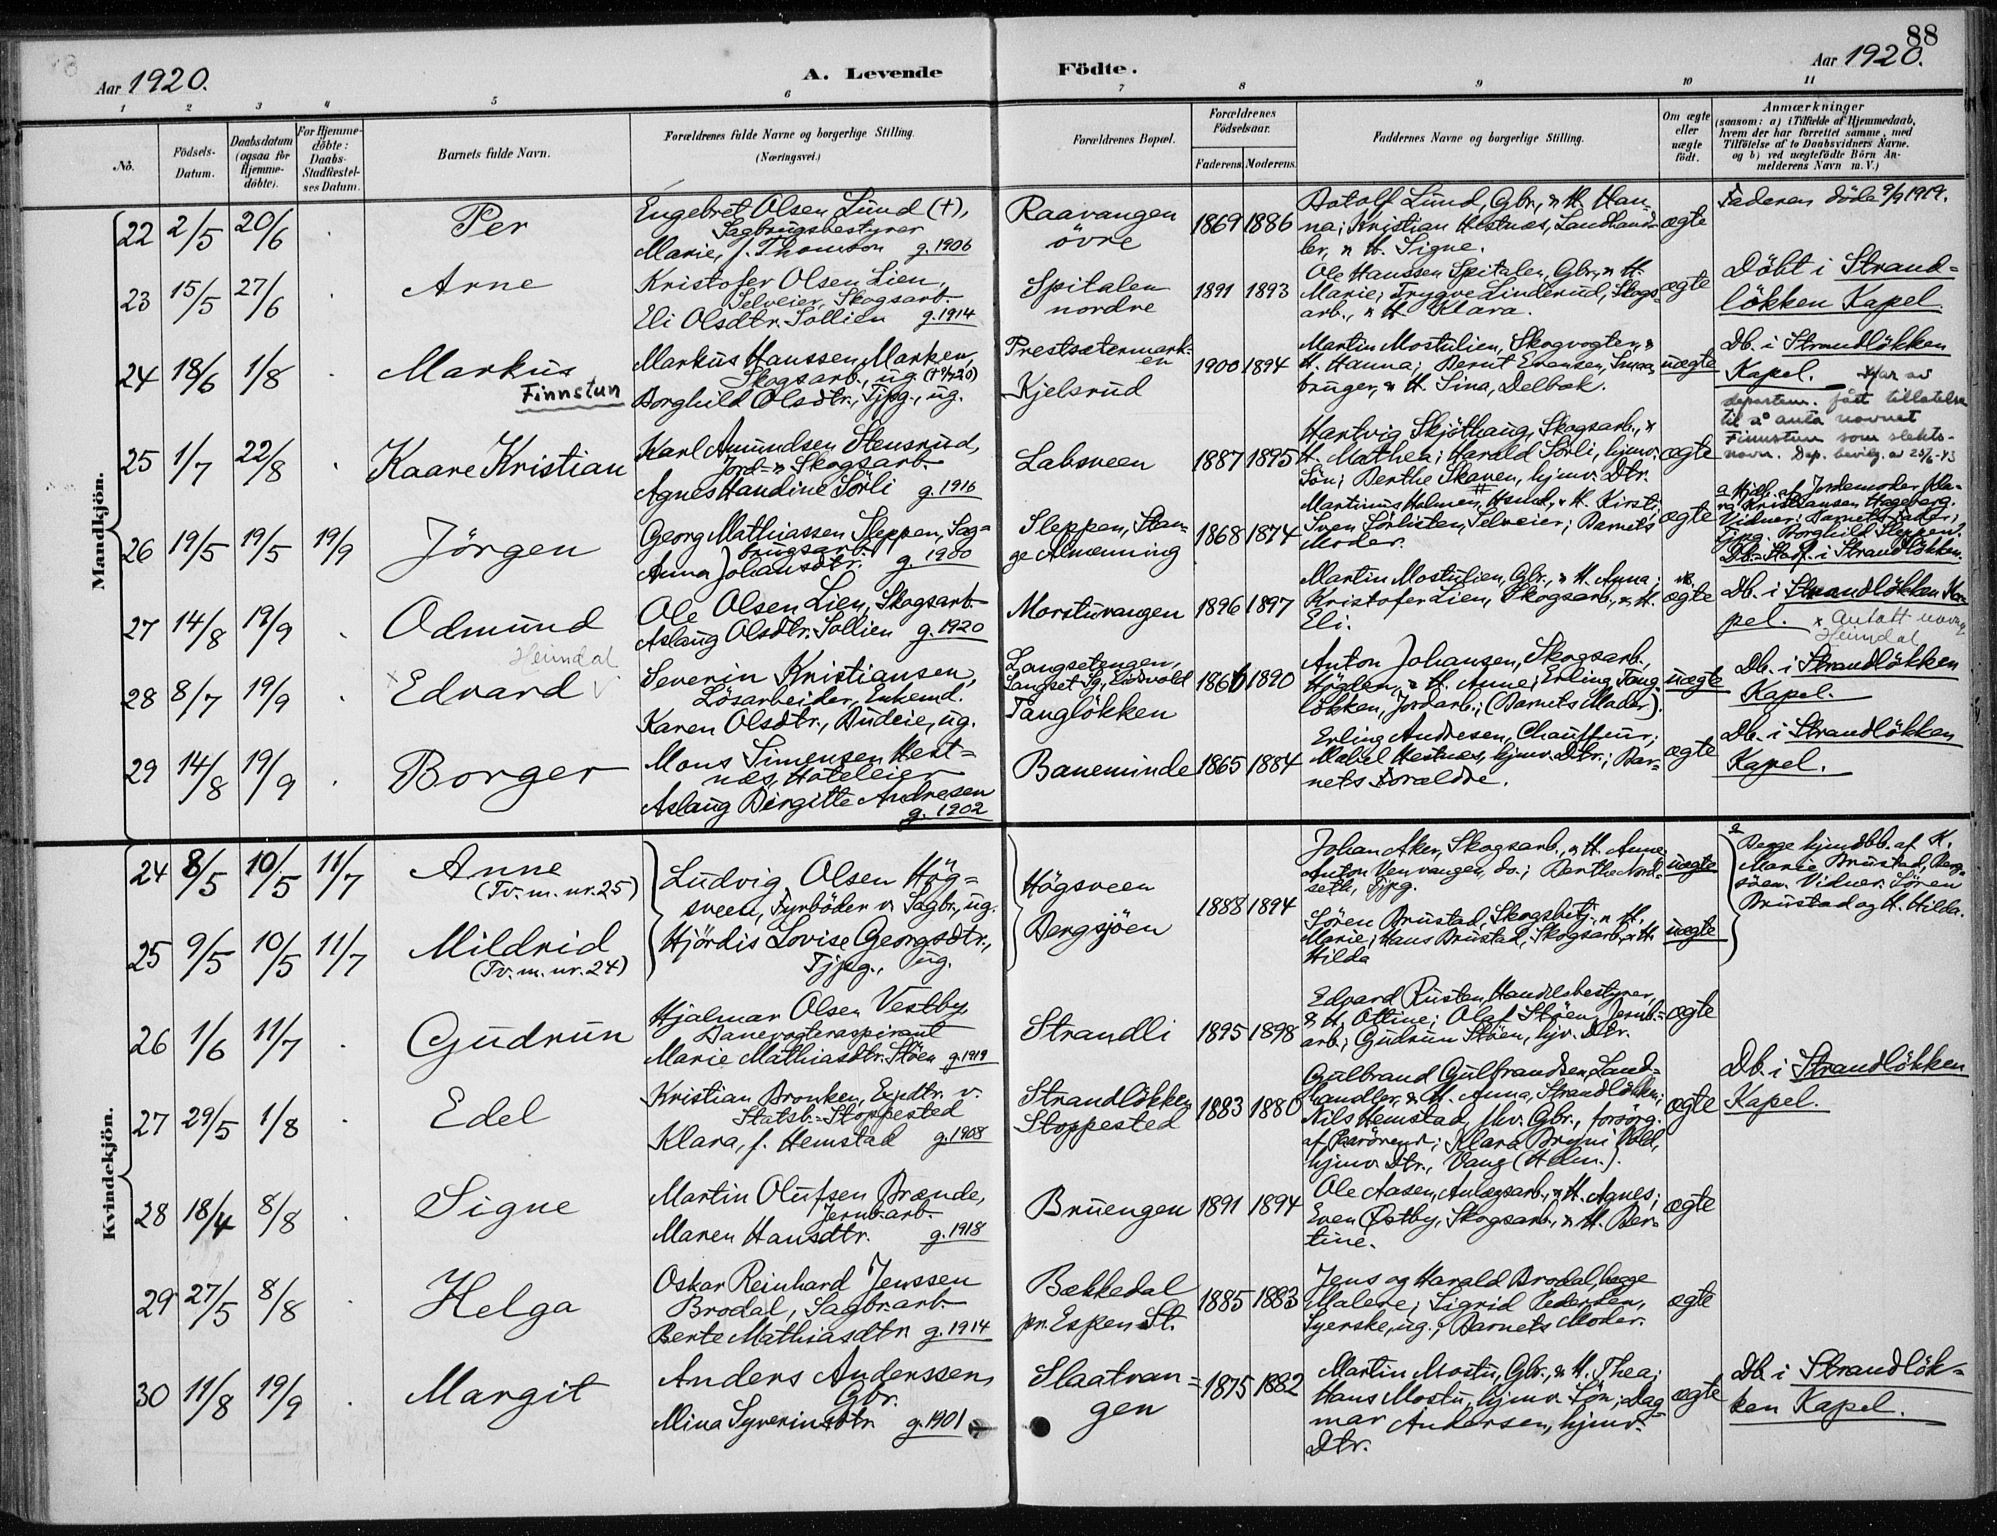 88
Aar 1920. A. Levende Födte. Aar 1920.
1 2 3 4 5 6 7 8 9 10 11
No.
Födsels-
Datum.
Daabsdatum
(ogsaa for
Hjemme-
döbte).
For Hjemme-
döbte:
Daabs-
Stadfestel-
ses Datum.
Barnets fulde Navn.
Forældrenes fulde Navne og borgerlige Stilling.
(Næringsvei.)
Forældrenes Bopæl.
Forældrenes
Födselsaar.
Faderens. Moderens.
Faddernes Navne og borgerlige Stilling.
Om ægte
eller
uægte
födt.
Anmærkninger
(saasom: a) i Tilfælde af Hjemmedaab,
hvem der har forrettet samme, med
Tilföielse af to Daabsvidners Navne.
og b) ved uægtefödte Börn An-
melderens Navn m. V.)
Mandkjön.
22 2/5 20/6 . Per
Engebret Olsen Lund (†),
Sagbrugsbestyrer
Marie, f. Thomson g. 1906
Raavangen
övre
1869 1886
Botolf Lund, Gbr., & H. Han-
na; Kristian Hestnæs, Landhand-
ler, & H. Signe.
ægte
Faderen döde 9/9 1919.
23 15/5 27/6 . Arne
Kristofer Olsen Lien,
Selveier, Skogsarb.
Eli Olsdtr. Sollien g. 1914
Spitalen
nordre
1891 1893
Ole Hanssen Spitalen, Gbr., & H.
Marie; Trygve Linderud, Skogs-
arb., & H. Klara.
ægte
Döbt i Strand-
lökken Kapel
24 18/6 1/8 . Markus
Finnstun
Markus Hanssen Marken,
Skogsarb., ug. († 9/4 20)
Borghild Olsdtr., Tjpg., ug.
Prestsætermark-
en
Kjelsrud
1900 1894
Martin Mostulien, Skogvogter, &
H. Hanna; Bernt Evensen, Smaa-
bruger, & H. Sina, Delbæk.
uægte
Db. i Strandlökken
Kapel. Har av
departem. fått tillatelse
til å anta navnet
Finnstun som slekts-
navn. Dep. bevilg. av 25/6-43
25 1/7 22/8 . Kaare Kristian
Karl Amundsen Stensrud,
Jord- & Skogsarb.
Agnes Handine Sörli g. 1916
Labsveen
1887 1895
Hartvig Skjöthaug, Skogsarb., &
H. Mathea; Harald Sörli, hjmv.
Sön; Berthe Skaven, hjmv. Dtr.
ægte
26 19/5 19/5 19/9 Jörgen
Georg Mathiassen Sleppen, Sag-
brugsarb.
Anna Johansdtr. g. 1900
Sleppen, Stan-
ge Almenning
1868 1874
Martinus Holmen, Hsmd., & H. Kirsti;
Sven Sörlisten, Selveier; Barnets
Moder.
ægte
a Hjdb. af Jordemoder Ma-
ria Kristiansen Hageberg.
Vidner: Barnets Fader;
Tjpg. Borghild Sleppen.
Db.-Stadf. i Strandlökken
27 14/8 19/9 . Odmund
Ole Olsen Lien, Skogsarb.
Aslaug Olsdtr. Sollien g. 1920
Morstuvangen
1896 1897
Martin Mostulien, Gbr., & H. Anna;
Kristofer Lien, Skogsarb., & H.
Eli.
ægte
Db. i Strandlökken Ka-
pel. x Antatt navn
Heimdal
28 8/7 19/9 . x Edvard
Heimdal
Severin Kristiansen,
Lösarbeider, Enkemd.
Karen Olsdtr., Budeie, ug.
Langsetengen,
Langset Sg., Eidsvold
Tanglökken
1866 1890
Anton Johansen, Skogsarb.,
Höiden, & H. Anne; Erling Tang-
lökken, Jordarb.; (Barnets Moder).
uægte
Db. i Strandlökken
Kapel.
29 14/8 19/9 . Borger
Mons Simensen Hest-
næs, Hoteleier
Aslaug Birgitte Andresen
g. 1902
Baneminde
1865 1884
Erling Andresen, Chauffeur;
Mabel Hestnæs, hjmv. Dtr.; Bar-
nets Forældre.
ægte
Db. i Strandlökken
Kapel.
Kvindekjön.
24 8/5 10/5 11/7 Anne
(Tv. m. nr. 25)
Ludvig Olsen Hög-
sveen, Fyrböder v. Sagbr., ug.
Högsveen
1888 1894
Johan Aker, Skogsarb., & H. Anne;
Anton Venvangen, do.; Berthe Nord-
seth, Tjpg.
uægte
a Begge hjmdbb. af K.
Marie Brustad, Berg-
sjöen. Vidner: Sören
Brustad og H. Hilda.
25 9/5 10/5 11/7 Mildrid
(Tv. m. nr. 24)
Hjördis Lovise Georgsdtr.,
Tjpg., ug.
Bergsjöen
Sören Brustad, Skogsbetj., & H.
Marie; Hans Brustad, Skogsarb., & H.
Hilda
uægte
26 1/6 11/7 Gudrun
Hjalmar Olsen Vestby
Banevogteraspirant
Marie Mathiasdtr. Stöen g. 1919
Strandli
1895 1898
Edvard Rusten, Handelsbestyrer,
& H. Ottine; Olaf Stöen, Jernb.-
arb.; Gudrun Stöen, hjv. Dtr.
ægte
27 29/5 1/8 . Edel
Kristian Bronken, Expdtr. v.
Statsb.-Stoppested
Klara, f. Hemstad g. 1908
Strandlökken
Stoppested
1883 1880
Gulbrand Gulbrandsen, Land-
handler, & H. Anna, Strandlökken;
Nils Hemstad, fhv. Gbr., forsörg.
af Paarörend; Klara Bryni Vold,
hjmv. Dtr., Vang (Hedm.).
ægte
Db. i Strandlökken
Kapel.
28 18/4 8/8 . Signe
Martin Olufsen Brænde,
Jernb.arb.
Maren Hansdtr. g. 1918
Bruengen
1891 1894
Ole Aasen, Anlægsarb., & H. Agnes;
Even Østby, Skogsarb., & H. Ber-
tine.
ægte
29 27/5 8/8 . Helga
Oskar Reinhard Jenssen
Brodal, Sagbr.arb.
Berte Mathiasdtr. g. 1914
Bækkedal
pr. Espen St.
1885 1883
Jens og Harald Brodal, begge
Malere; Sigrid Pedersen,
Syerske, ug.; Barnets Moder.
ægte
30 11/8 19/9 . Margit
Anders Anderssen,
Gbr.
Mina Syverinsdtr. g. 1901
Slaatvan-
gen
1875 1882
Martin Mostu, Gbr., & H. Thea;
Hans Mostu, hjmv. Sön; Dag-
mar Andersen, hjmv.
Dtr.
ægte
Db. i Strandlök-
ken Kapel.